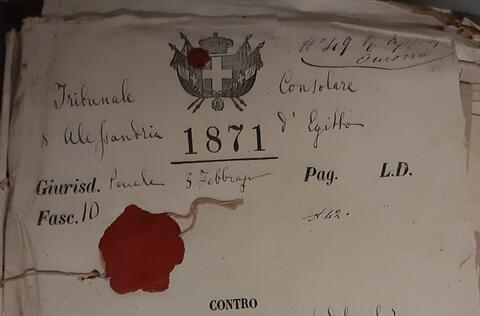 Tribunale Consolare
d'Alessandria d'Egitto
1871
Giurisd. Penale 3 Febbrajo Pag. L.D.
Fasc. 10
CONTRO